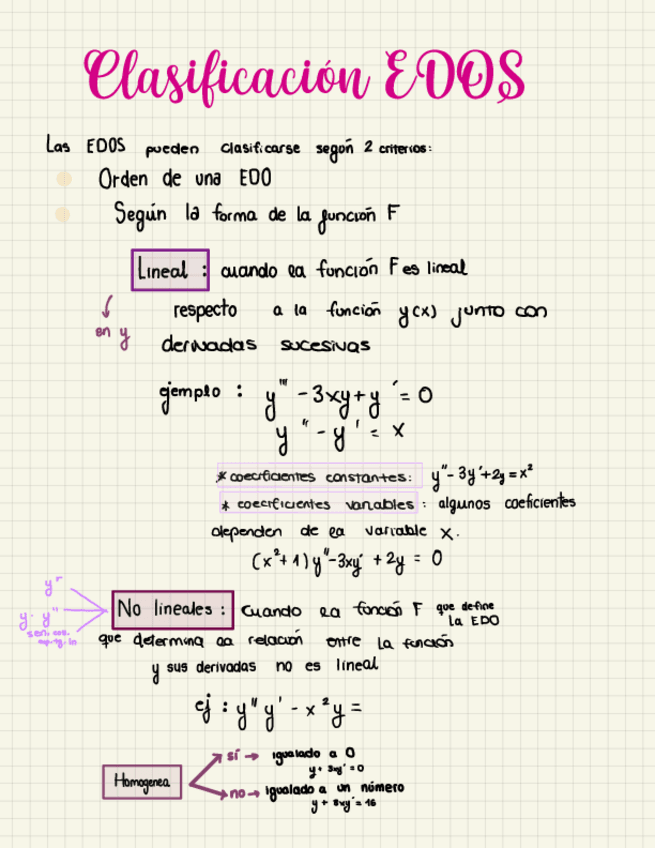 Clasificación EDOS
Las EDOS pueden clasificarse según 2 criterios:
Orden de una EDO
Según la forma de la función F
Lineal : cuando la función F es lineal
en y
respecto a la función y(x) junto con
derivadas sucesivas
ejemplo : y''' - 3xy + y' = 0
y'' - y' = x
* coecificientes constantes: y'' - 3y' + 2y = x²
* coecrficientes variables : algunos coeficientes
dependen de la variable x.
(x² + 1) y'' - 3xy' + 2y = 0
y · y''
No lineales : Cuando la función F que define
la EDO
que determina la relación entre la función
y sus derivadas no es lineal
ej : y'' y' - x² y =
Homogenea
sí → igualado a 0
y + 3xy' = 0
no → igualado a un número
y + 8xy' = 16